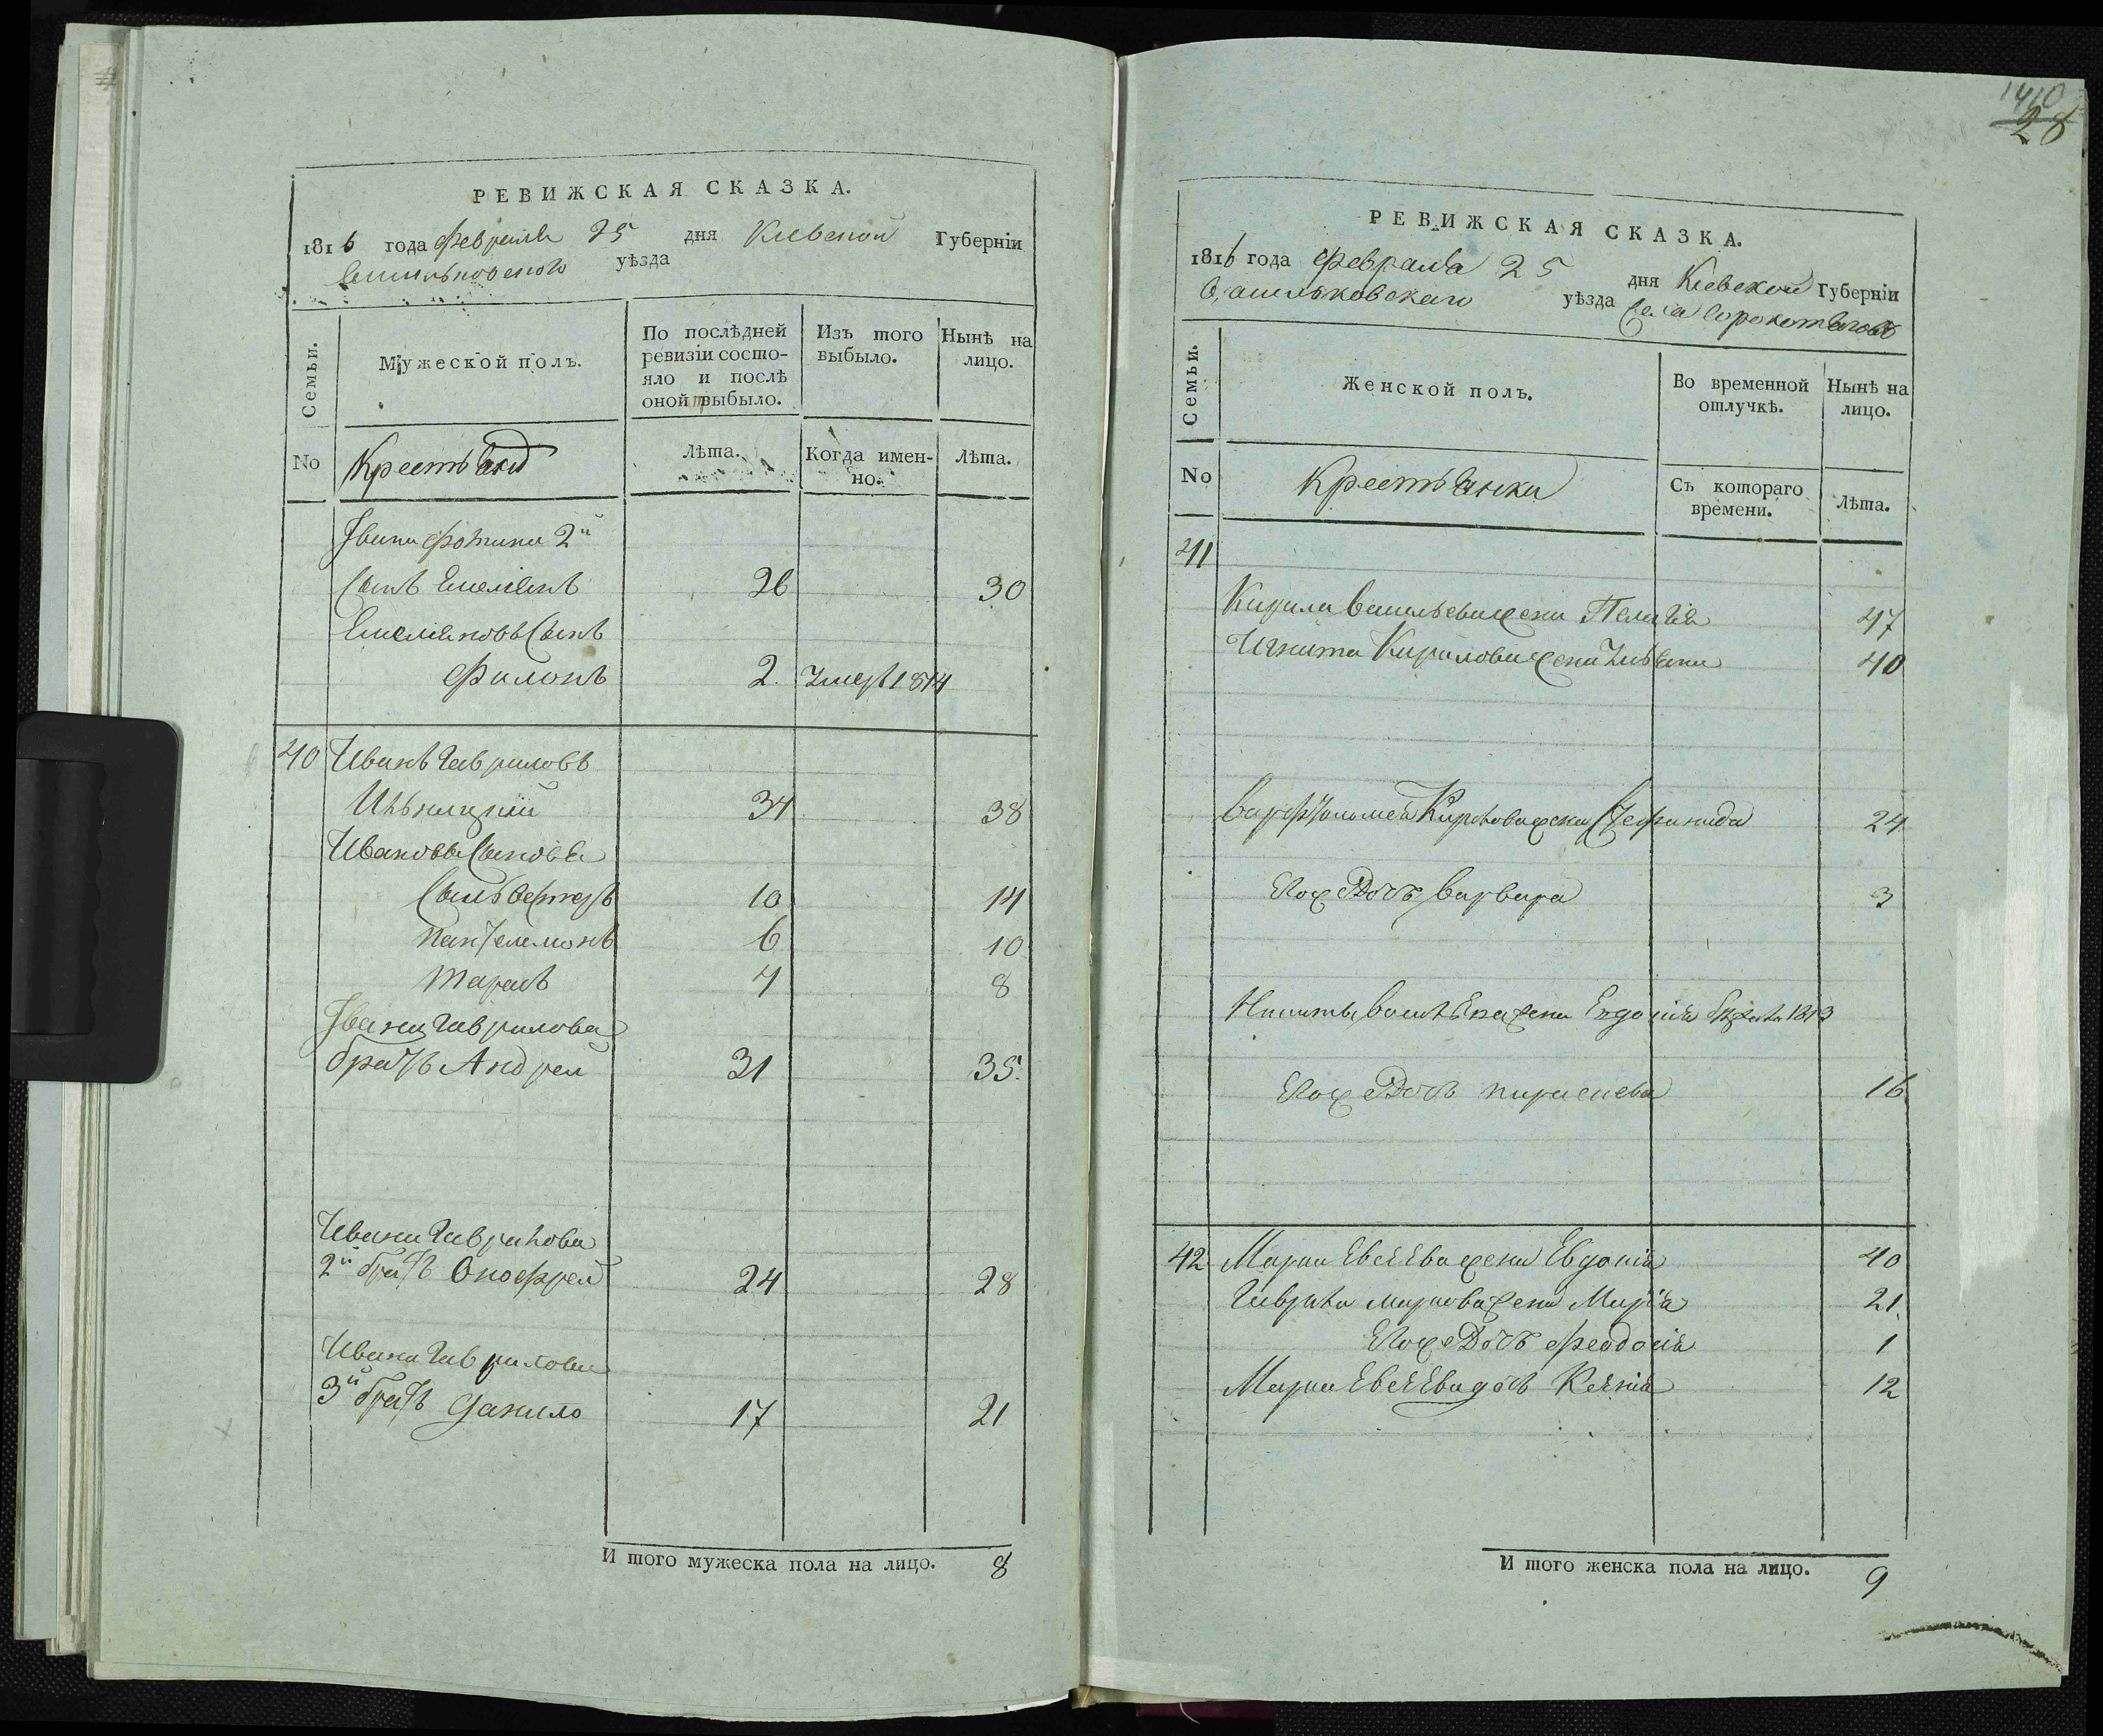 РЕВИЖСКАЯ СКАЗКА.
1816 года февраля 25 дня Киевской Губерніи
Васильковского уѣзда
Семьи.
Мужеской полъ.
По послѣдней ревизіи состояло и послѣ оной выбыло.
Изъ того выбыло.
Нынѣ на лицо.
No
Крестьяне
Лѣта.
Когда именно.
Лѣта.
Ивана Фотина 2й
Сынъ Емеліянъ 26 30
Емеліяновъ Сынъ
Филонъ 2. Умер 1814
40 Иванъ Гавриловъ
34 38
Ивановы Сыновья
Сильвестеръ 10 14
Пантелемонъ 6 10
Тарасъ 4 8
Ивана Гаврилова
братъ Андрей 31 35.
Ивана Гаврилова
2й братъ Онофрей 24 28
Ивана Гаврилова
3й братъ Данило 17 21
И того мужеска пола на лицо. 8
1410
28
РЕВИЖСКАЯ СКАЗКА.
1816 года февраля 25 дня Киевской Губерніи
Васильковскаго уѣзда Села Сорокотяговъ
Семьи.
Женской полъ.
Во временной отлучкѣ.
Нынѣ на лицо.
No
Крестьянки
Съ котораго времени.
Лѣта.
41
Кирила Васильева жена Пелагія 47
Игната Кирилова жена Ульяна 40
Варфоломея Кирилова жена 24
Его же Дочь Варвара 3
Никиты жена Евдокія 1813
Его же Дочь Параскева 16
42 Марка Евсѣева жена Евдокія 40
Гаврила Маркова жена Марія 21.
Его же Дочь Феодосія 1
Марка Евсѣева дочь Ксенія 12
И того женска пола на лицо. 9